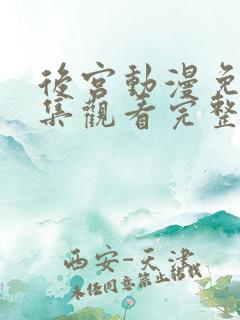 後宮動漫免
集觀看完整
西安-天津
未经同意禁止转载